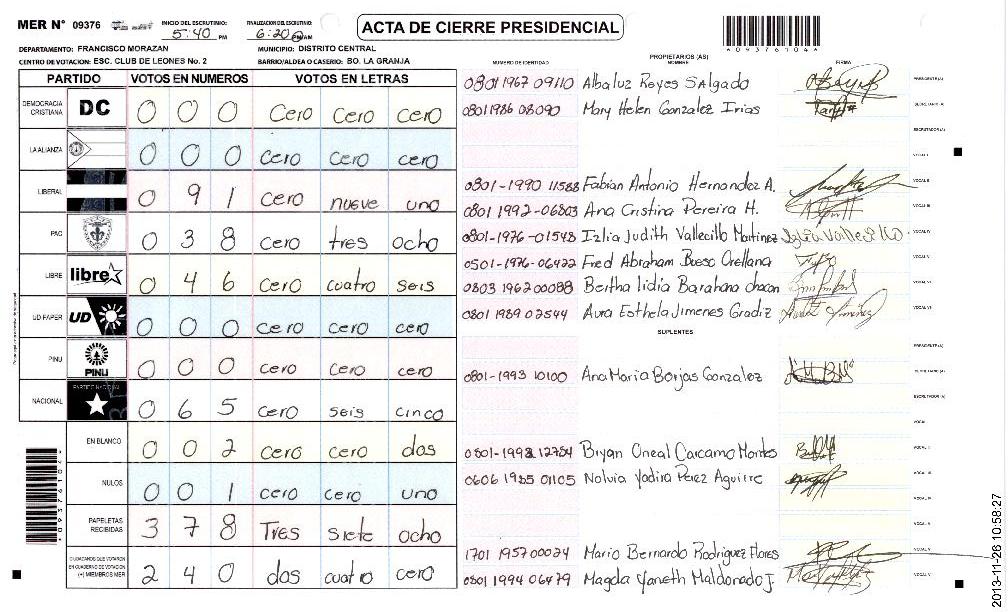 MER N° 09376
INICIO DEL ESCRUTINIO: 5:40 PM
FINALIZACION DEL ESCRUTINIO: 6:20 PM/AM
ACTA DE CIERRE PRESIDENCIAL
DEPARTAMENTO: FRANCISCO MORAZAN
MUNICIPIO: DISTRITO CENTRAL
CENTRO DE VOTACION: ESC. CLUB DE LEONES No. 2
BARRIO/ALDEA O CASERIO: BO. LA GRANJA
PARTIDO VOTOS EN NUMEROS VOTOS EN LETRAS
DEMOCRACIA CRISTIANA DC 0 0 0 Cero Cero cero
LA ALIANZA 0 0 0 cero cero cero
LIBERAL 0 9 1 cero nueve uno
PAC 0 3 8 cero tres ocho
LIBRE libre 0 4 6 cero cuatro seis
UD FAPER UD 0 0 0 cero cero cero
PINU PINU 0 0 0 cero cero cero
NACIONAL PARTIDO NACIONAL 0 6 5 cero seis cinco
EN BLANCO 0 0 2 cero cero dos
NULOS 0 0 1 cero cero uno
PAPELETAS RECIBIDAS 3 7 8 Tres siete ocho
CIUDADANOS QUE VOTARON EN CUADERNO DE VOTACION (+) MIEMBROS MER 2 4 0 dos cuatro cero
NUMERO DE IDENTIDAD
PROPIETARIOS (AS)
NOMBRE
FIRMA
0801 1967 09110 Albaluz Reyes Salgado PRESIDENTE(A)
0801 1986 08090 Mary Helen Gonzalez Irias SECRETARIO(A)
ESCRUTADOR(A)
VOCAL I
0801-1990 11588 Fabian Antonio Hernandez A. VOCAL II
0801 1992-06803 Ana Cristina Pereira H. VOCAL III
0801-1976-01548 Izlia Judith Vallecillo Martinez VOCAL IV
0501-1976-06422 Fred Abraham Bueso Orellana VOCAL V
0803 1962 00088 Bertha lidia Barahona chacon VOCAL VI
0801 1989 07544 Aura Esthela Jimenes Gradiz
SUPLENTES
PRESIDENTE(A)
0801-1993 10100 Ana Maria Borjas Gonzalez SECRETARIO(A)
ESCRUTADOR(A)
VOCAL I
0801-1992 12784 Bryan Oneal Carcamo Montes VOCAL II
0606 1985 01105 Nolvia Yadira Perez Aguirre VOCAL III
VOCAL IV
1701 1957 00024 Mario Bernardo Rodriguez Flores
0801 1994 06479 Magda Yaneth Maldonado J.
2013-11-26 10:58:27